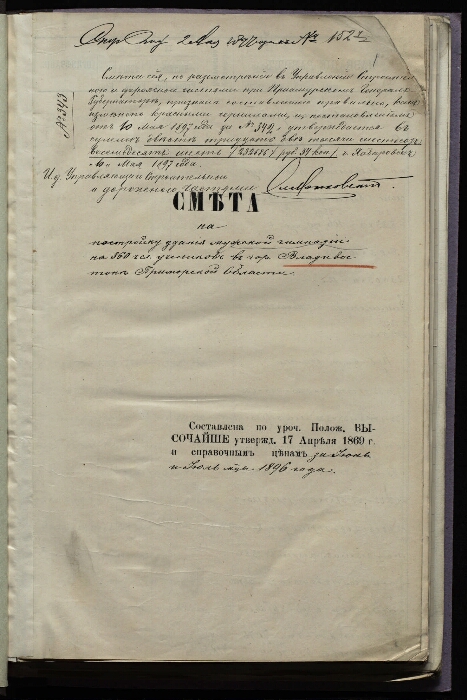 2 Мая 1897 № 1527
Смета сія, по разсмотрѣніи въ Управленіи Строитель
ною и дорожною частями при Приамурскомъ Генералъ
Губернаторѣ, признана составленною правильно, съ
измѣненіемъ красными чернилами, и постановленіемъ
отъ 10 Мая 1897 года за № 342 утверждается въ
суммѣ двѣсти тридцать двѣ тысячи шестьсотъ
восемьдесятъ шесть (232686) руб. коп. г. Хабаровскъ
Мая 1897 года.
№ 343
И. д. Управляющаго Строительной
и дорожною частями
СМѢТА
на
постройку зданія мужской гимназіи
на 560 чел. учениковъ въ гор. Владивос-
токъ Приморской Области.
Составлена по уроч. Полож. ВЫ-
СОЧАЙШЕ утвержд. 17 Апрѣля 1869 г.
и справочнымъ цѣнамъ за Іюнь
и Іюль мѣс. 1896 года.